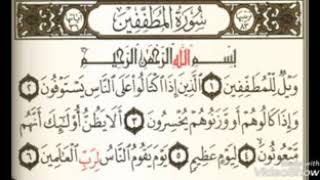 سُورَةُ المُطَفِّفِينَ
بِسْمِ اللَّهِ الرَّحْمَٰنِ الرَّحِيمِ
وَيْلٌ لِّلْمُطَفِّفِينَ ١ الَّذِينَ إِذَا اكْتَالُوا عَلَى النَّاسِ يَسْتَوْفُونَ ٢
وَإِذَا كَالُوهُمْ أَو وَّزَنُوهُمْ يُخْسِرُونَ ٣ أَلَا يَظُنُّ أُولَٰئِكَ أَنَّهُم
مَّبْعُوثُونَ ٤ لِيَوْمٍ عَظِيمٍ ٥ يَوْمَ يَقُومُ النَّاسُ لِرَبِّ الْعَالَمِينَ ٦
VideoShow